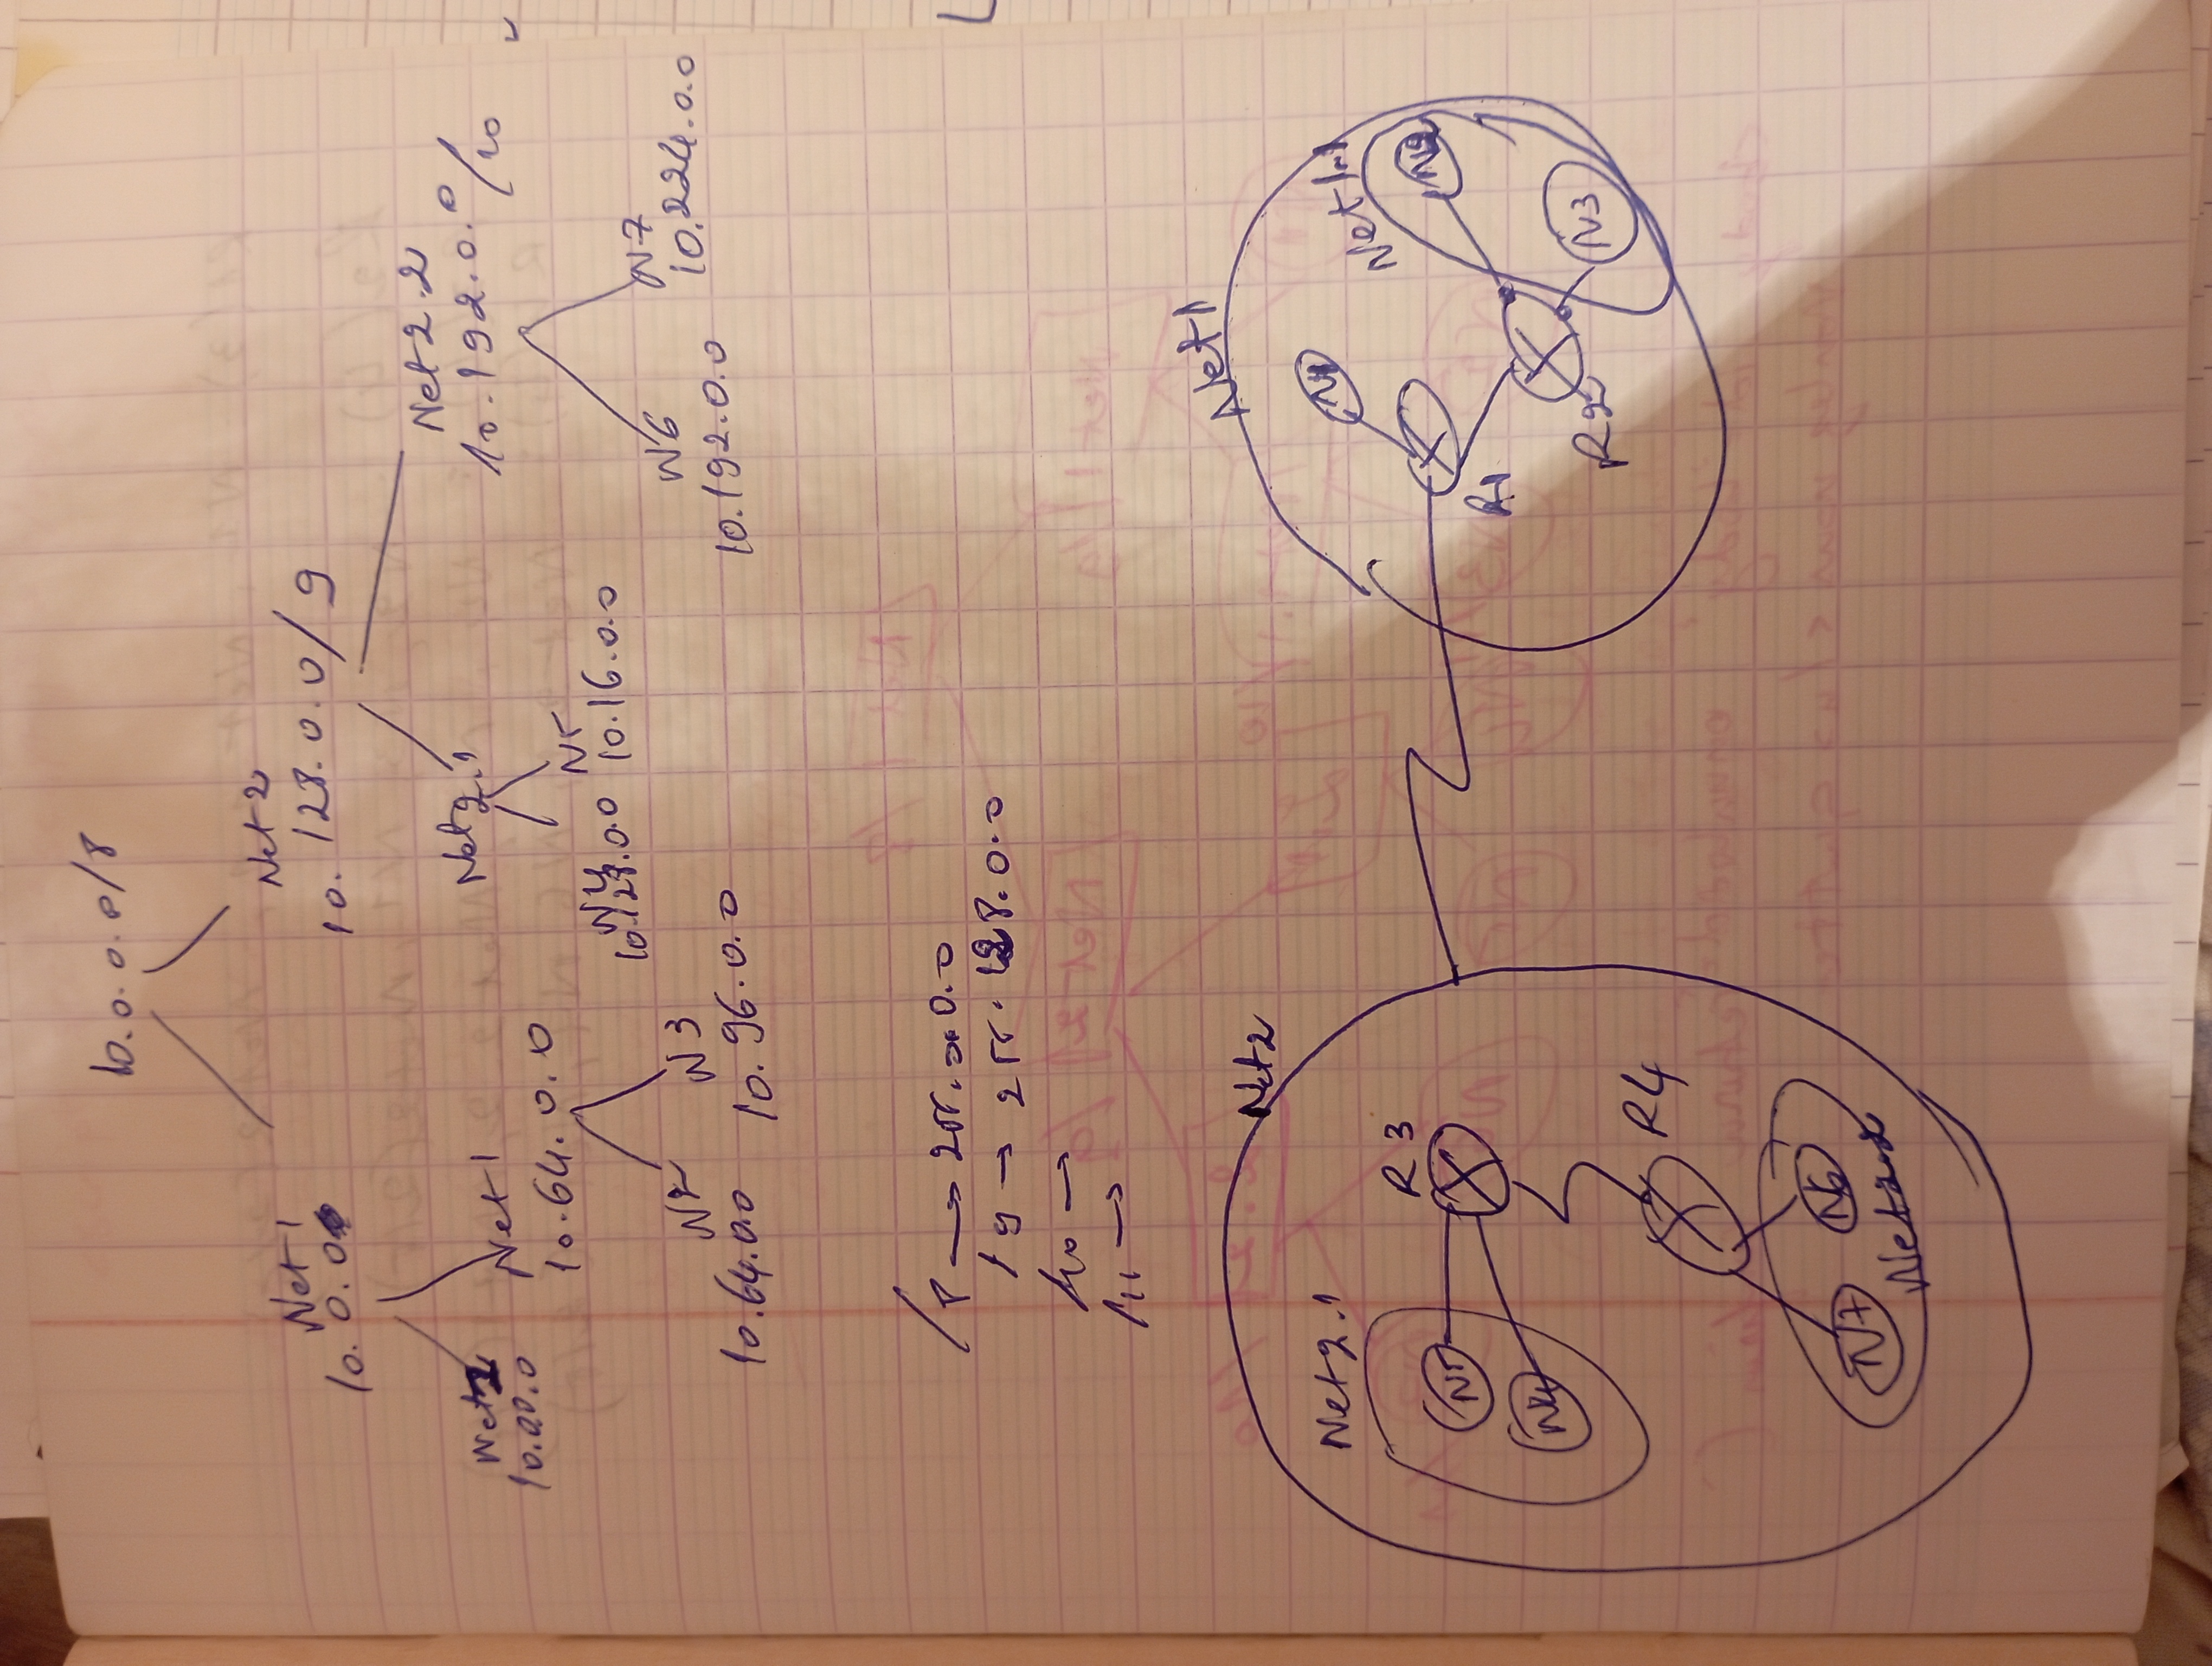 10.0.0.0/8
Net1
10.0.0
Net2
10.128.0.0/9
10.0.0.0
Net1
10.64.0.0
Net2.1
Net2.2
10.192.0.0/10
N2
10.64.0.0
N3
10.96.0.0
N4
10.128.0.0
N5
10.16.0.0
N6
10.192.0.0
N7
10.224.0.0
/8 → 255.0.0.0
/9 → 255.128.0.0
/10 →
/11 →
Net2
Net2.1
N5
N4
R3
R4
N7
N6
Net2.2
Net1
N1
Net1.1
N2
R1
R2
N3